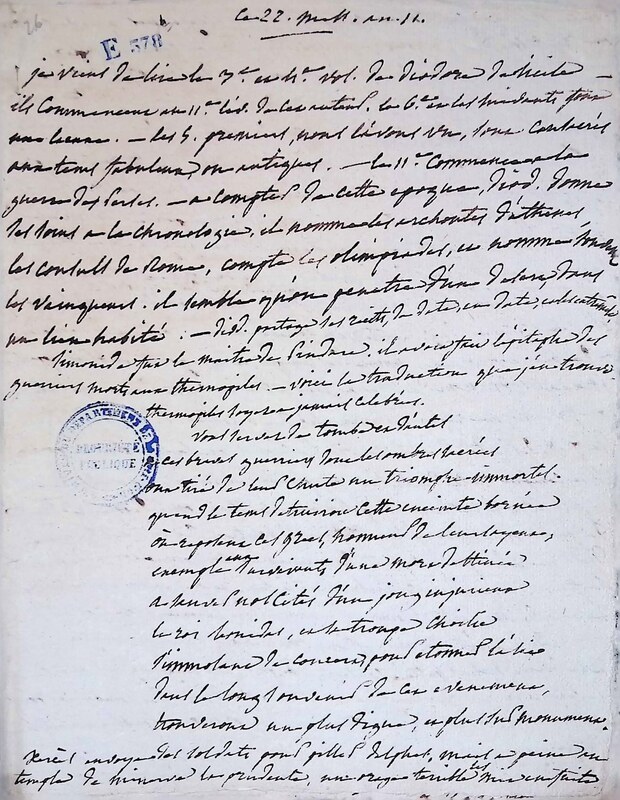 26
le 22. mess. an 12.
E 378
je viens de lire le 3.e et 4.e vol. de diodore de sicile —
ils commencent au 11.e liv. de cet auteur. le 6.e et les suivants jusqu'
— les 5. premiers, nous l'avons vu, sont consacrés
aux tems fabuleux, ou antiques. — le 11.e commence a la
guerre des Perses. — a compter de cette epoque, diod. donne
ses soins a la chronologie, il nomme les archontes d'athenes,
les consuls de Rome, compte les olimpiades, et nomme
les vainqueurs. il semble qu'on penetre d'un desert, dans
un lieu habité. — diod. partage ses recits, de date, en date,
Simonide fut le maitre de Pindare. il avoit fait l'épitaphe des
guerriers morts aux thermopiles. — voici la traduction que j'en trouve.
thermopiles soyez a jamais celebres.
vous servez de tombe et d'autel
a ces braves guerriers dont les ombres
ont tiré de leur chute un triomphe immortel.
quand le tems detruiroit cette enceinte bornée
où reposent ces grecs, l'honneur de leur
exemple aux survivants d'une mort destinée
a sauver nos cités d'un joug injurieux
le roi leonidas, et sa troupe choisie
s'immolant de concert, pour etonner l'asie
dans le long souvenir de cet evenement,
trouveront un plus digne, et plus sur monument.
Xerès envoye des soldats pour piller delphes, mais a peine au
temple de minerve la prudente, un orage terrible